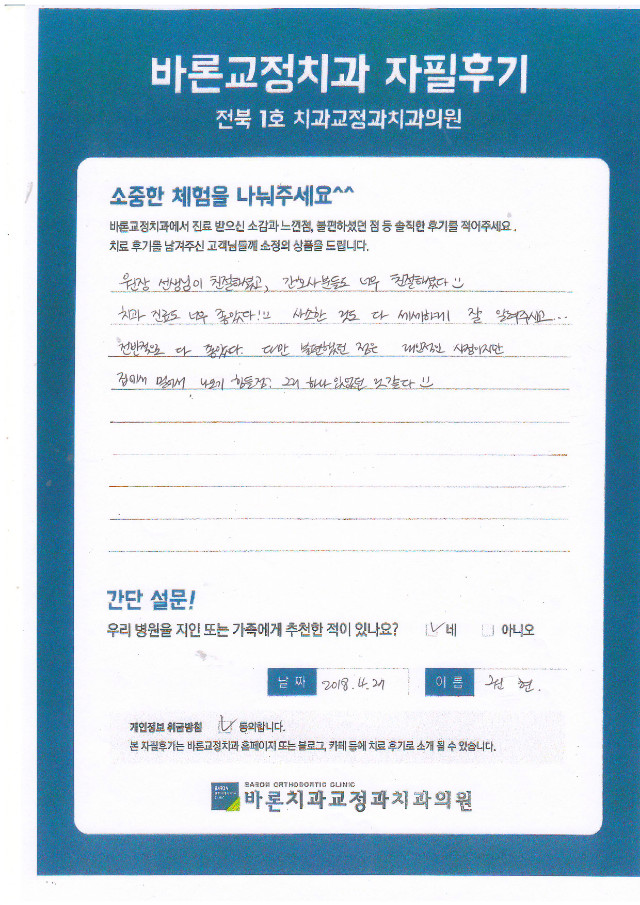 바론교정치과 자필후기
전북 1호 치과교정과치과의원
소중한 체험을 나눠주세요^^
바론교정치과에서 진료 받으신 소감과 느낀점, 불편하셨던 점 등 솔직한 후기를 적어주세요.
치료 후기를 남겨주신 고객님들께 소정의 상품을 드립니다.
원장 선생님이 친절하셨고, 간호사분들도 너무 친절하셨다
치과 진료도 너무 좋았다!! 사소한 것도 다 세세하게 잘 알려주시고...
전반적으로 다 좋았다. 다만 불편했던 점은 개인적인 사정이지만
집에서 멀어서 나오기 힘든점? 그거 하나 있었던 것같다
간단 설문!
우리 병원을 지인 또는 가족에게 추천한 적이 있나요? 네 아니오
날 짜 2018.4.27 이 름 권 현.
개인정보 취급방침 동의합니다.
본 자필후기는 바론교정치과 홈페이지 또는 블로그, 카페 등에 치료 후기로 소개 될 수 있습니다.
BARON ORTHODONTIC CLINIC
바론치과교정과치과의원